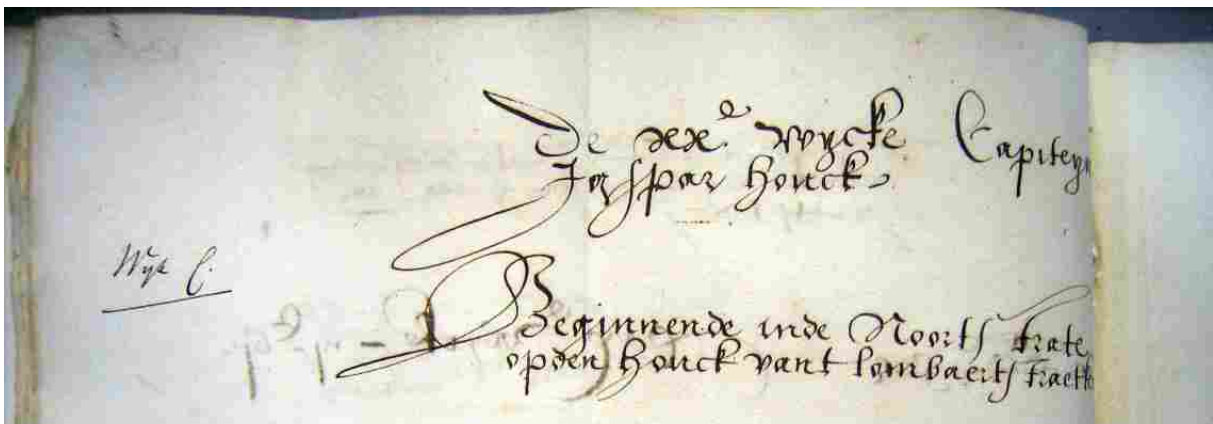 De xxe. wycke Capiteyn
Jaspar Houck
Wyk C.
Beginnende inde Noortstrate
opden Houck vant lombaertstraetke